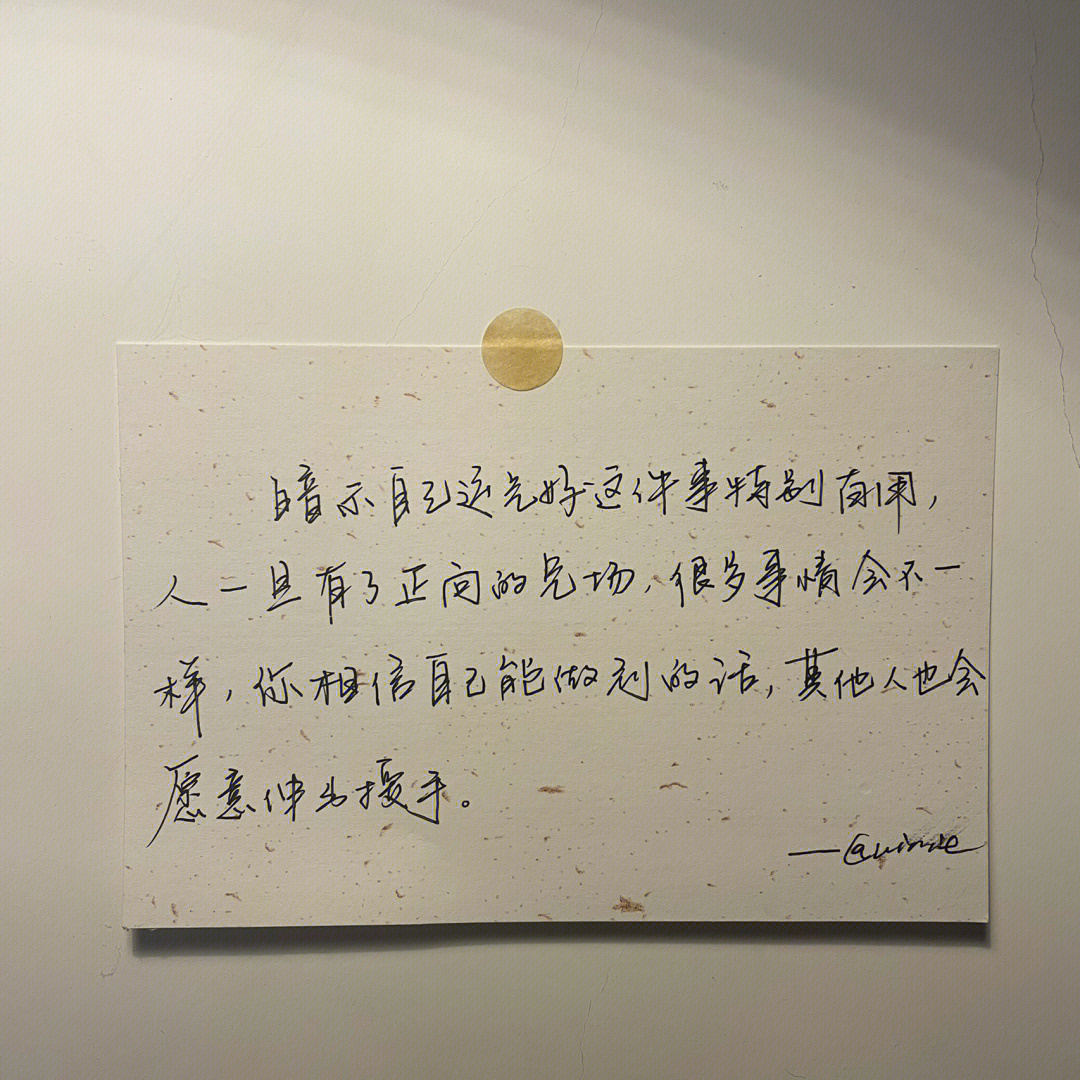 暗示自己运气好这件事特别有用，
人一旦有了正向的气场，很多事情会不一
样，你相信自己能做到的话，其他人也会
愿意伸出援手。